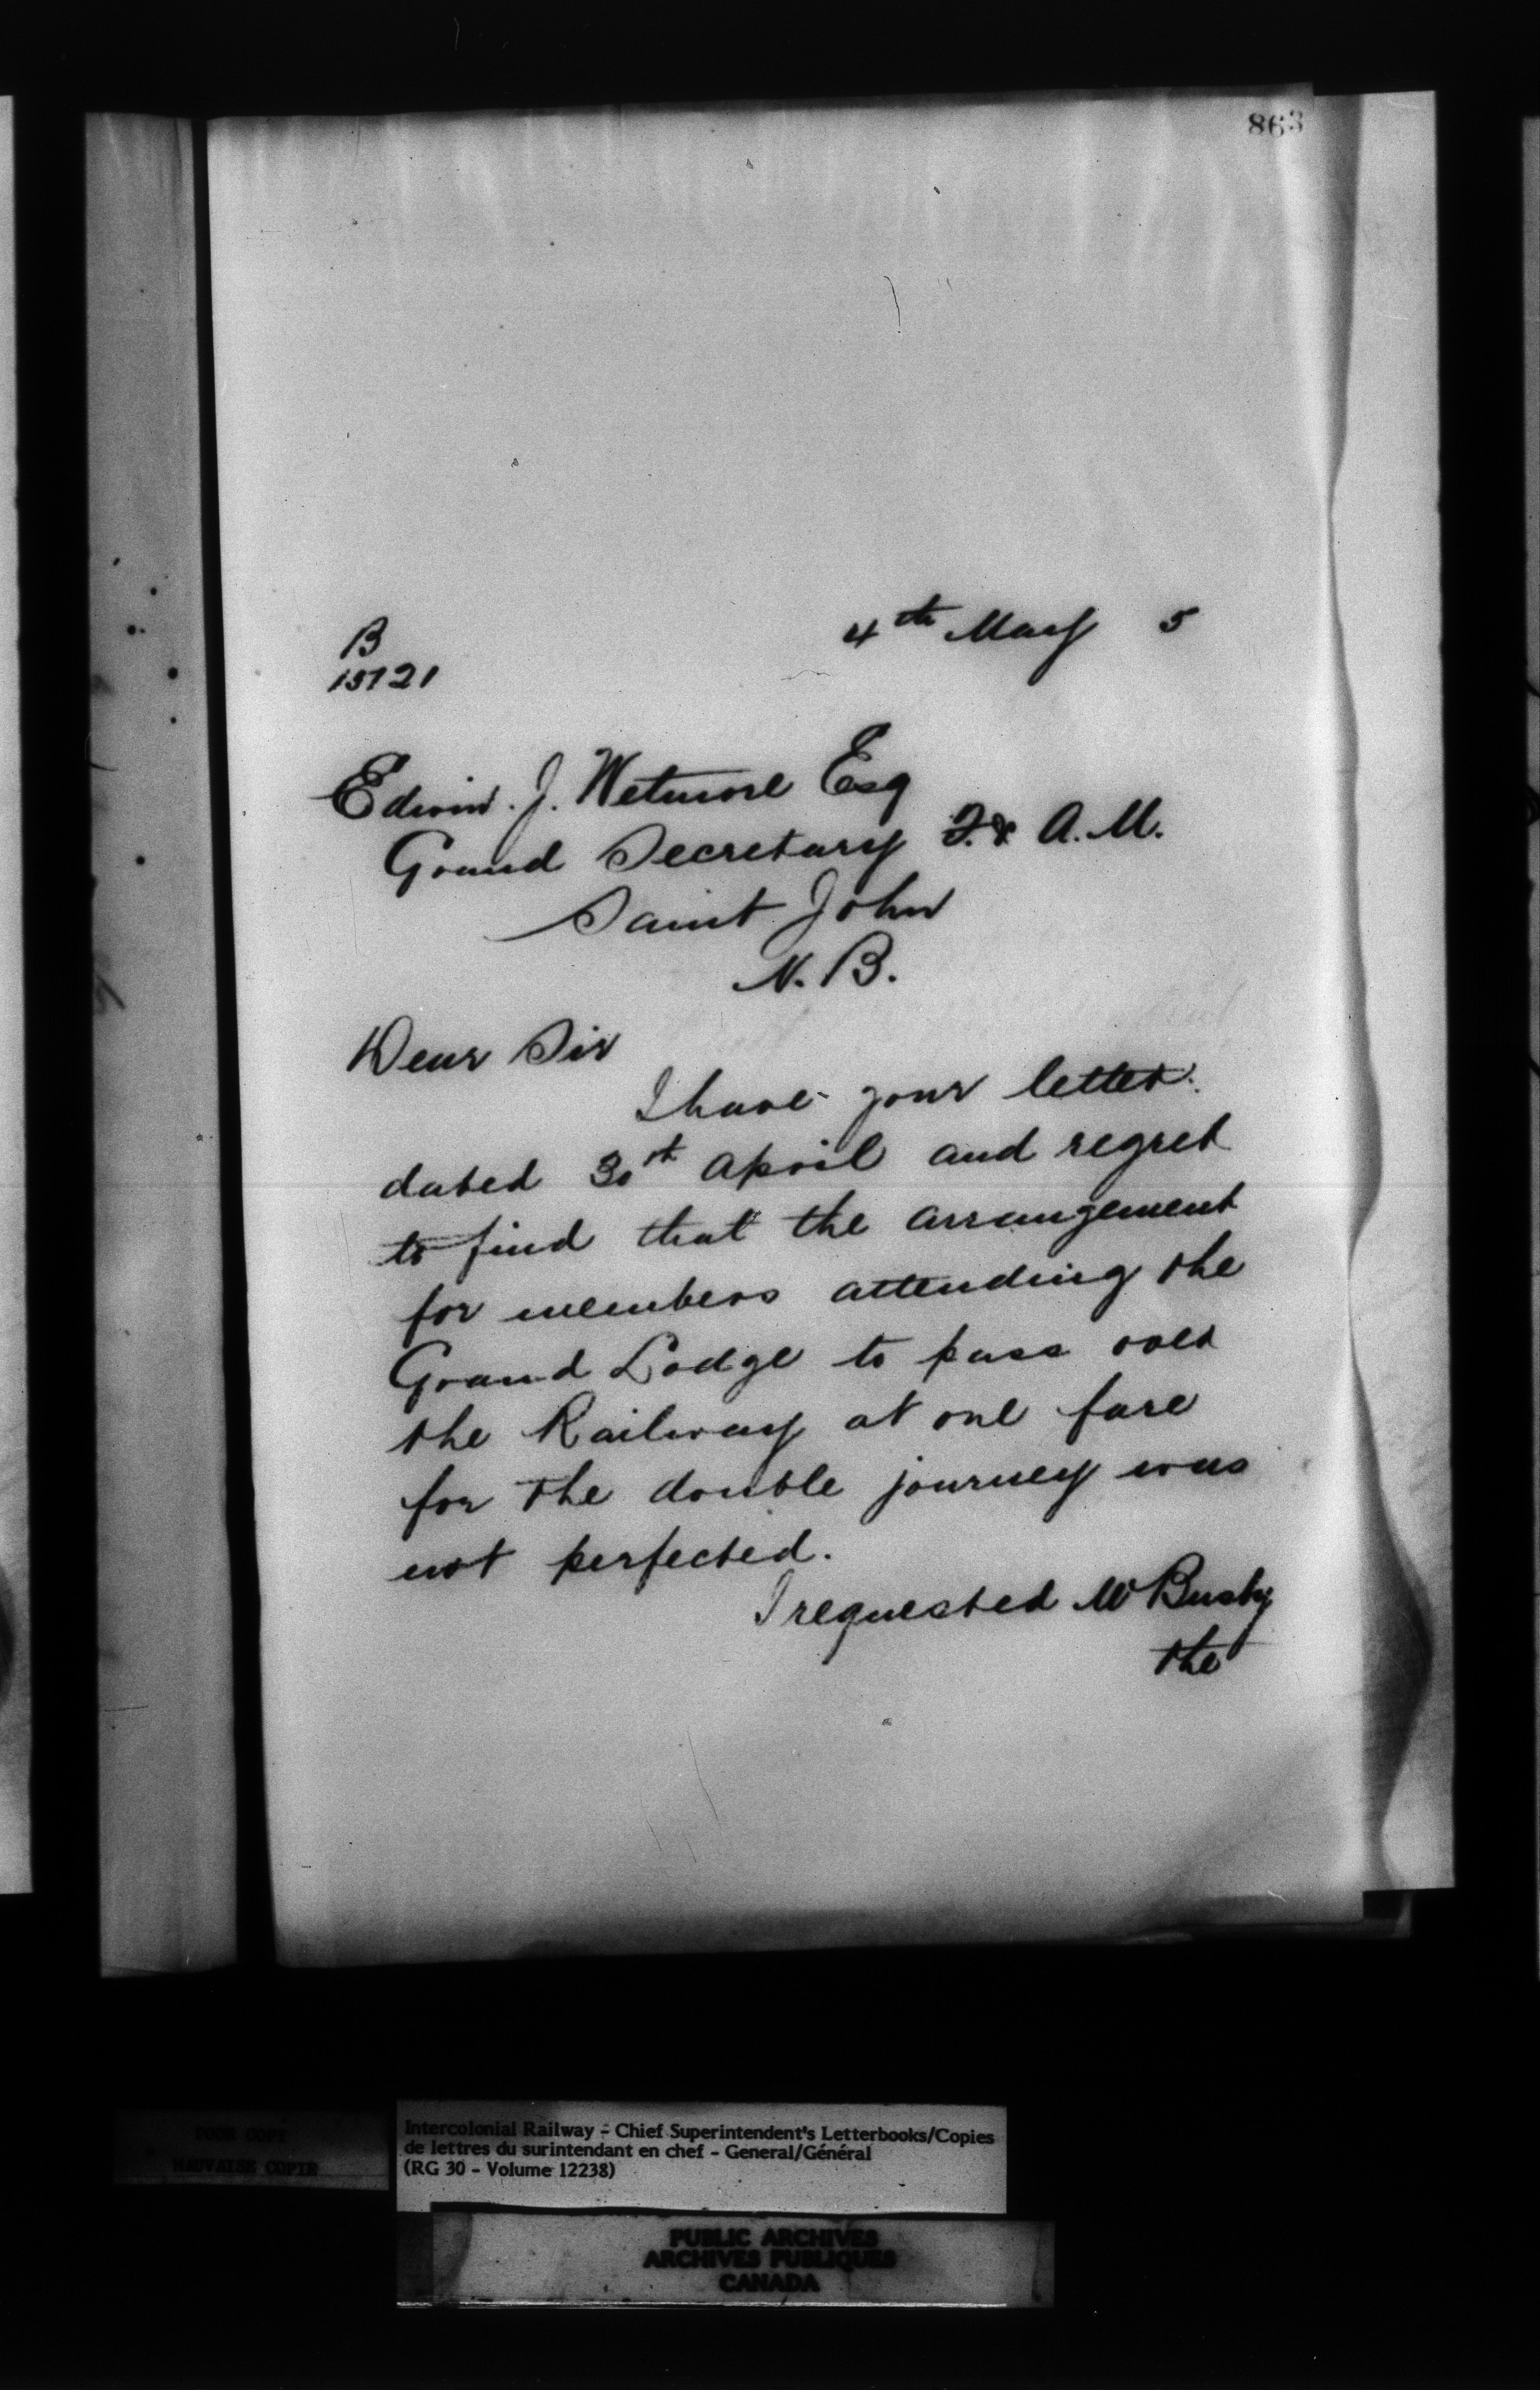 863
4th May 5
B
15721
Edwin. J. Wetmore Esq
Grand Secretary F. & A. M.
Saint John
N. B.
Dear Sir
I have your letter
dated 30th April and regret
to find that the arrangement
for members attending the
Grand Lodge to pass over
the Railway at one fare
for the double journey was
not perfected.
I requested Mr Busby
the
POOR COPY
MAUVAISE COPIE
Intercolonial Railway - Chief Superintendent's Letterbooks/Copies
de lettres du surintendant en chef - General/Général
(RG 30 - Volume 12238)
PUBLIC ARCHIVES
ARCHIVES PUBLIQUES
CANADA